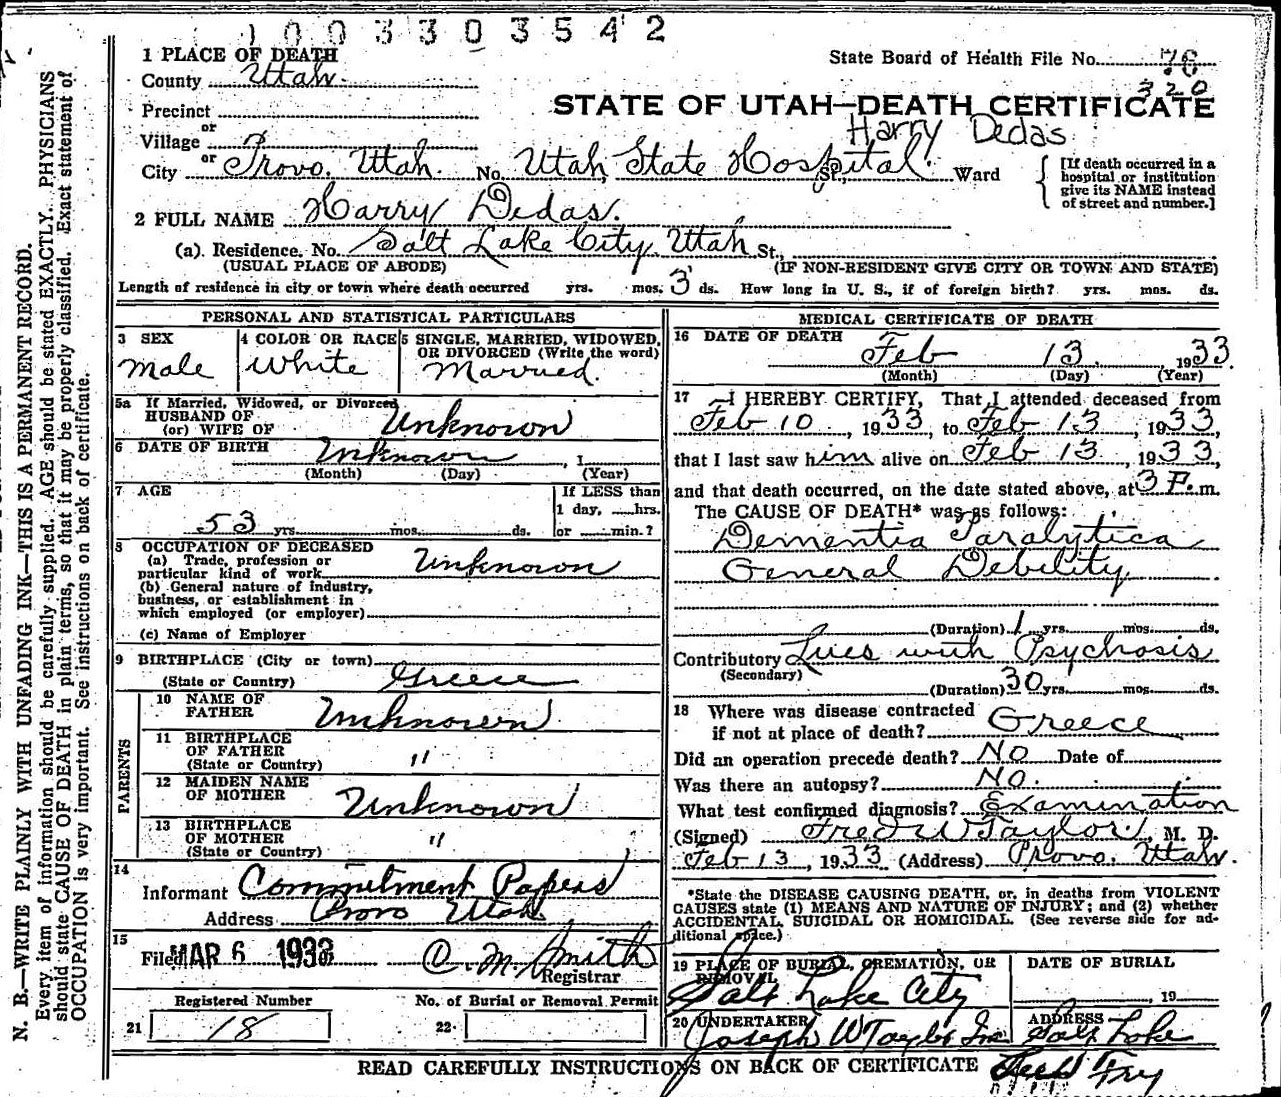 1003303542
1 PLACE OF DEATH
State Board of Health File No. 76
County Utah
320
STATE OF UTAH—DEATH CERTIFICATE
Precinct
Harry Dedas
or
Village
or
City Provo, Utah. No. Utah State Hospital. St., Ward
[If death occurred in a
hospital or institution
give its NAME instead
of street and number.]
2 FULL NAME Harry Dedas.
(a). Residence. No. Salt Lake City, Utah St.,
(USUAL PLACE OF ABODE) (IF NON-RESIDENT GIVE CITY OR TOWN AND STATE)
Length of residence in city or town where death occurred yrs. mos. 3 ds. How long in U. S., if of foreign birth? yrs. mos. ds.
PERSONAL AND STATISTICAL PARTICULARS
3 SEX
Male
4 COLOR OR RACE
White
5 SINGLE, MARRIED, WIDOWED,
OR DIVORCED (Write the word)
Married.
5a If Married, Widowed, or Divorced
HUSBAND OF
(or) WIFE OF Unknown
6 DATE OF BIRTH Unknown, 1
(Month) (Day) (Year)
7 AGE
53 yrs. mos. ds.
If LESS than
1 day, hrs.
or min.?
8 OCCUPATION OF DECEASED
(a) Trade, profession or
particular kind of work Unknown
(b) General nature of industry,
business, or establishment in
which employed (or employer)
(c) Name of Employer
9 BIRTHPLACE (City or town)
(State or Country) Greece
PARENTS
10 NAME OF
FATHER Unknown
11 BIRTHPLACE
OF FATHER
(State or Country) "
12 MAIDEN NAME
OF MOTHER Unknown
13 BIRTHPLACE
OF MOTHER
(State or Country) "
14
Informant Commitment Papers
Address Provo Utah.
15
Filed MAR 6 1933 C. M. Smith
Registrar
Registered Number
21 18
No. of Burial or Removal Permit
22
MEDICAL CERTIFICATE OF DEATH
16 DATE OF DEATH
Feb 13. 1933
(Month) (Day) (Year)
17 I HEREBY CERTIFY, That I attended deceased from
Feb 10, 1933, to Feb 13, 1933,
that I last saw him alive on Feb 13, 1933,
and that death occurred, on the date stated above, at 3 P. m.
The CAUSE OF DEATH* was as follows:
Dementia Paralytica
General Debility
(Duration) 1 yrs. mos. ds.
Contributory Lues with Psychosis
(Secondary)
(Duration) 30 yrs. mos. ds.
18 Where was disease contracted
if not at place of death? Greece
Did an operation precede death? No Date of
Was there an autopsy? No.
What test confirmed diagnosis? Examination
(Signed) Fred W Taylor, M. D.
Feb 13, 1933 (Address) Provo, Utah.
*State the DISEASE CAUSING DEATH, or, in deaths from VIOLENT
CAUSES state (1) MEANS AND NATURE OF INJURY; and (2) whether
ACCIDENTAL, SUICIDAL OR HOMICIDAL. (See reverse side for ad-
ditional space.)
19 PLACE OF BURIAL, CREMATION, OR
REMOVAL
Salt Lake City
DATE OF BURIAL
, 19
20 UNDERTAKER
Joseph W Taylor Inc
ADDRESS
Salt Lake
READ CAREFULLY INSTRUCTIONS ON BACK OF CERTIFICATE
N. B.—WRITE PLAINLY WITH UNFADING INK—THIS IS A PERMANENT RECORD.
Every item of information should be carefully supplied. AGE should be stated EXACTLY. PHYSICIANS
should state CAUSE OF DEATH in plain terms, so that it may be properly classified. Exact statement of
OCCUPATION is very important. See instructions on back of certificate.